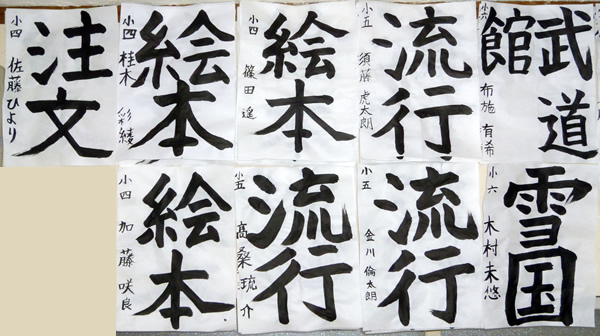 注文
小四 佐藤ひより
絵本
小四 桂木 彩綾
絵本
小四 篠田 遥
流行
小五 須藤 虎太朗
武道館
小六 布施 有希
絵本
小四 加藤 咲良
流行
小五 高桑 琉介
流行
小五 金川 倫太朗
雪国
小六 木村未悠